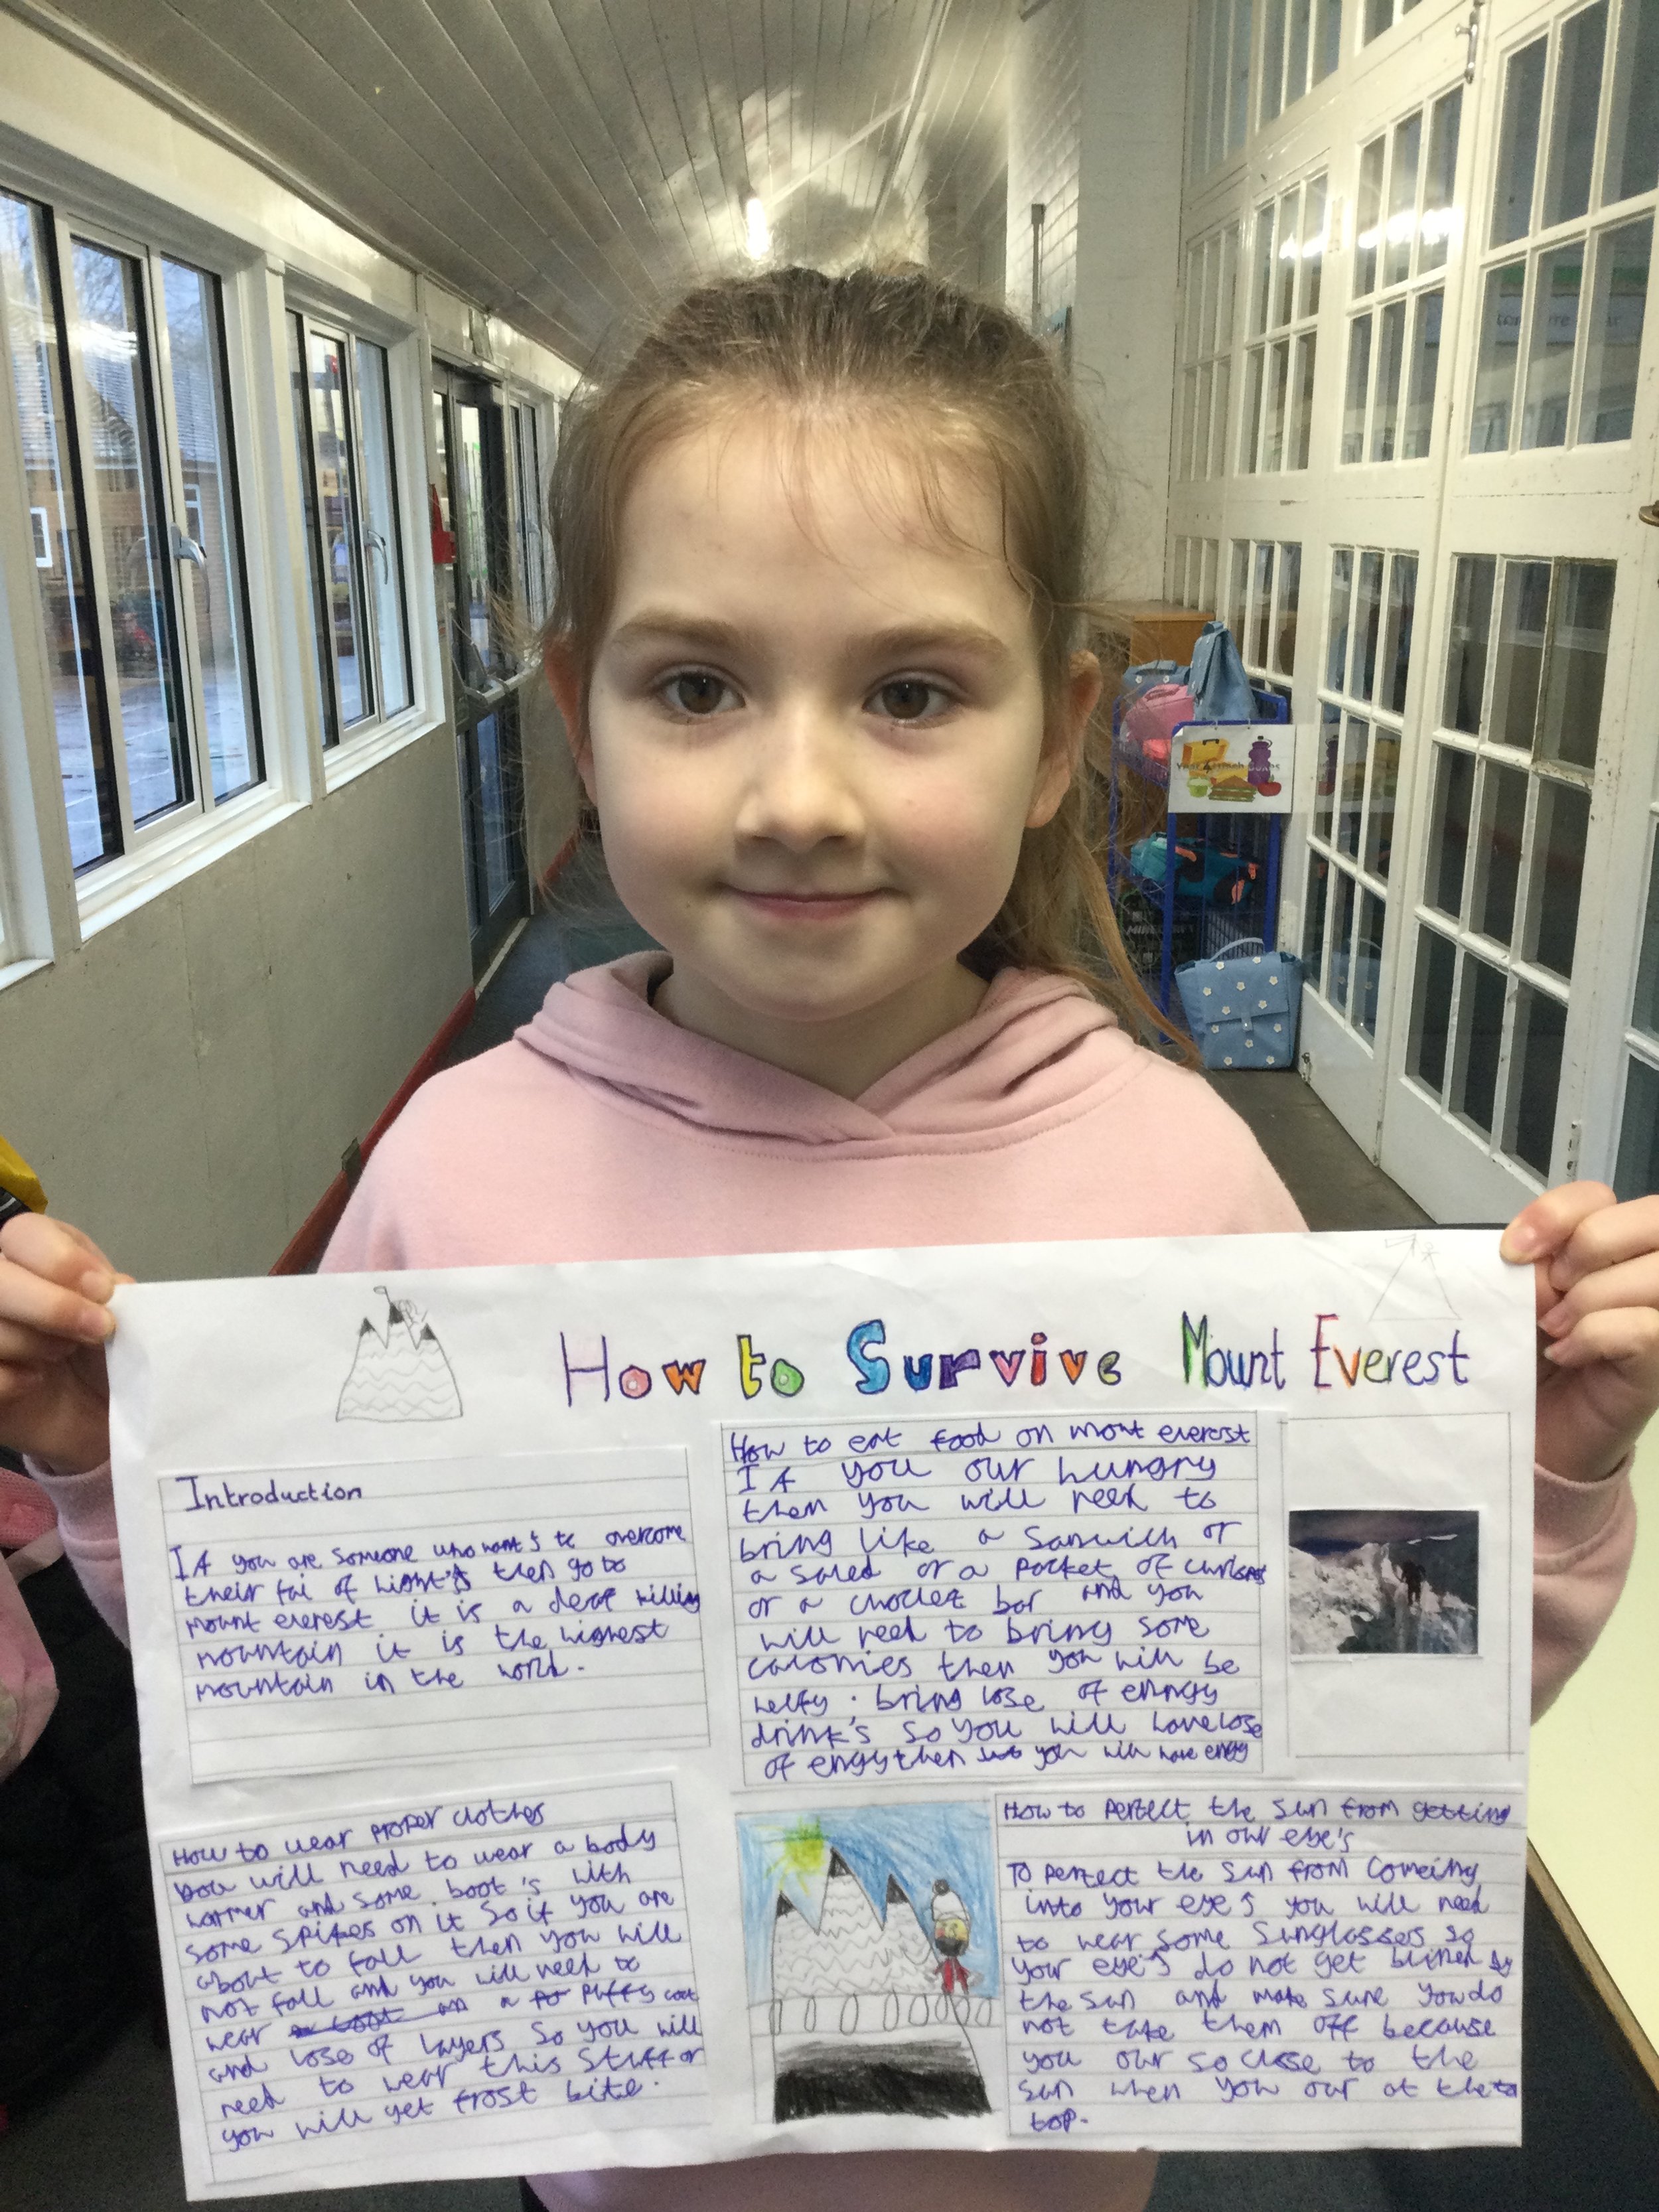 How to Survive Mount Everest
Introduction
If you are someone who want's to overcome
their fai of hight's then go to
mount everest it is a deaf killing
mountain it is the highest
mountain in the world.
How to eat food on mont everest
If you our hungry
then you will need to
bring like a sanwich or
a saled or a packet of
or a choclet bar and you
will need to bring some
calomies then you will be
helfy. bring lose of enrgy
drink's so you will have lose
of engy then you will have engy
How to wear proper clothes
you will need to wear a body
warmer and some boot's with
some spikes on it so if you are
about to fall then you will
not fall and you will need to
wear a puffy coat
and lose of layers so you will
need to wear this stuff or
you will get frost bite.
How to pertect the sun from getting
in our eye's
To pertect the sun from comeing
into your eye's you will need
to wear some sunglasses so
your eye's do not get blined by
the sun and make sure you do
not take them off because
you our so close to the
sun when you our at the
top.
MINECRAFT